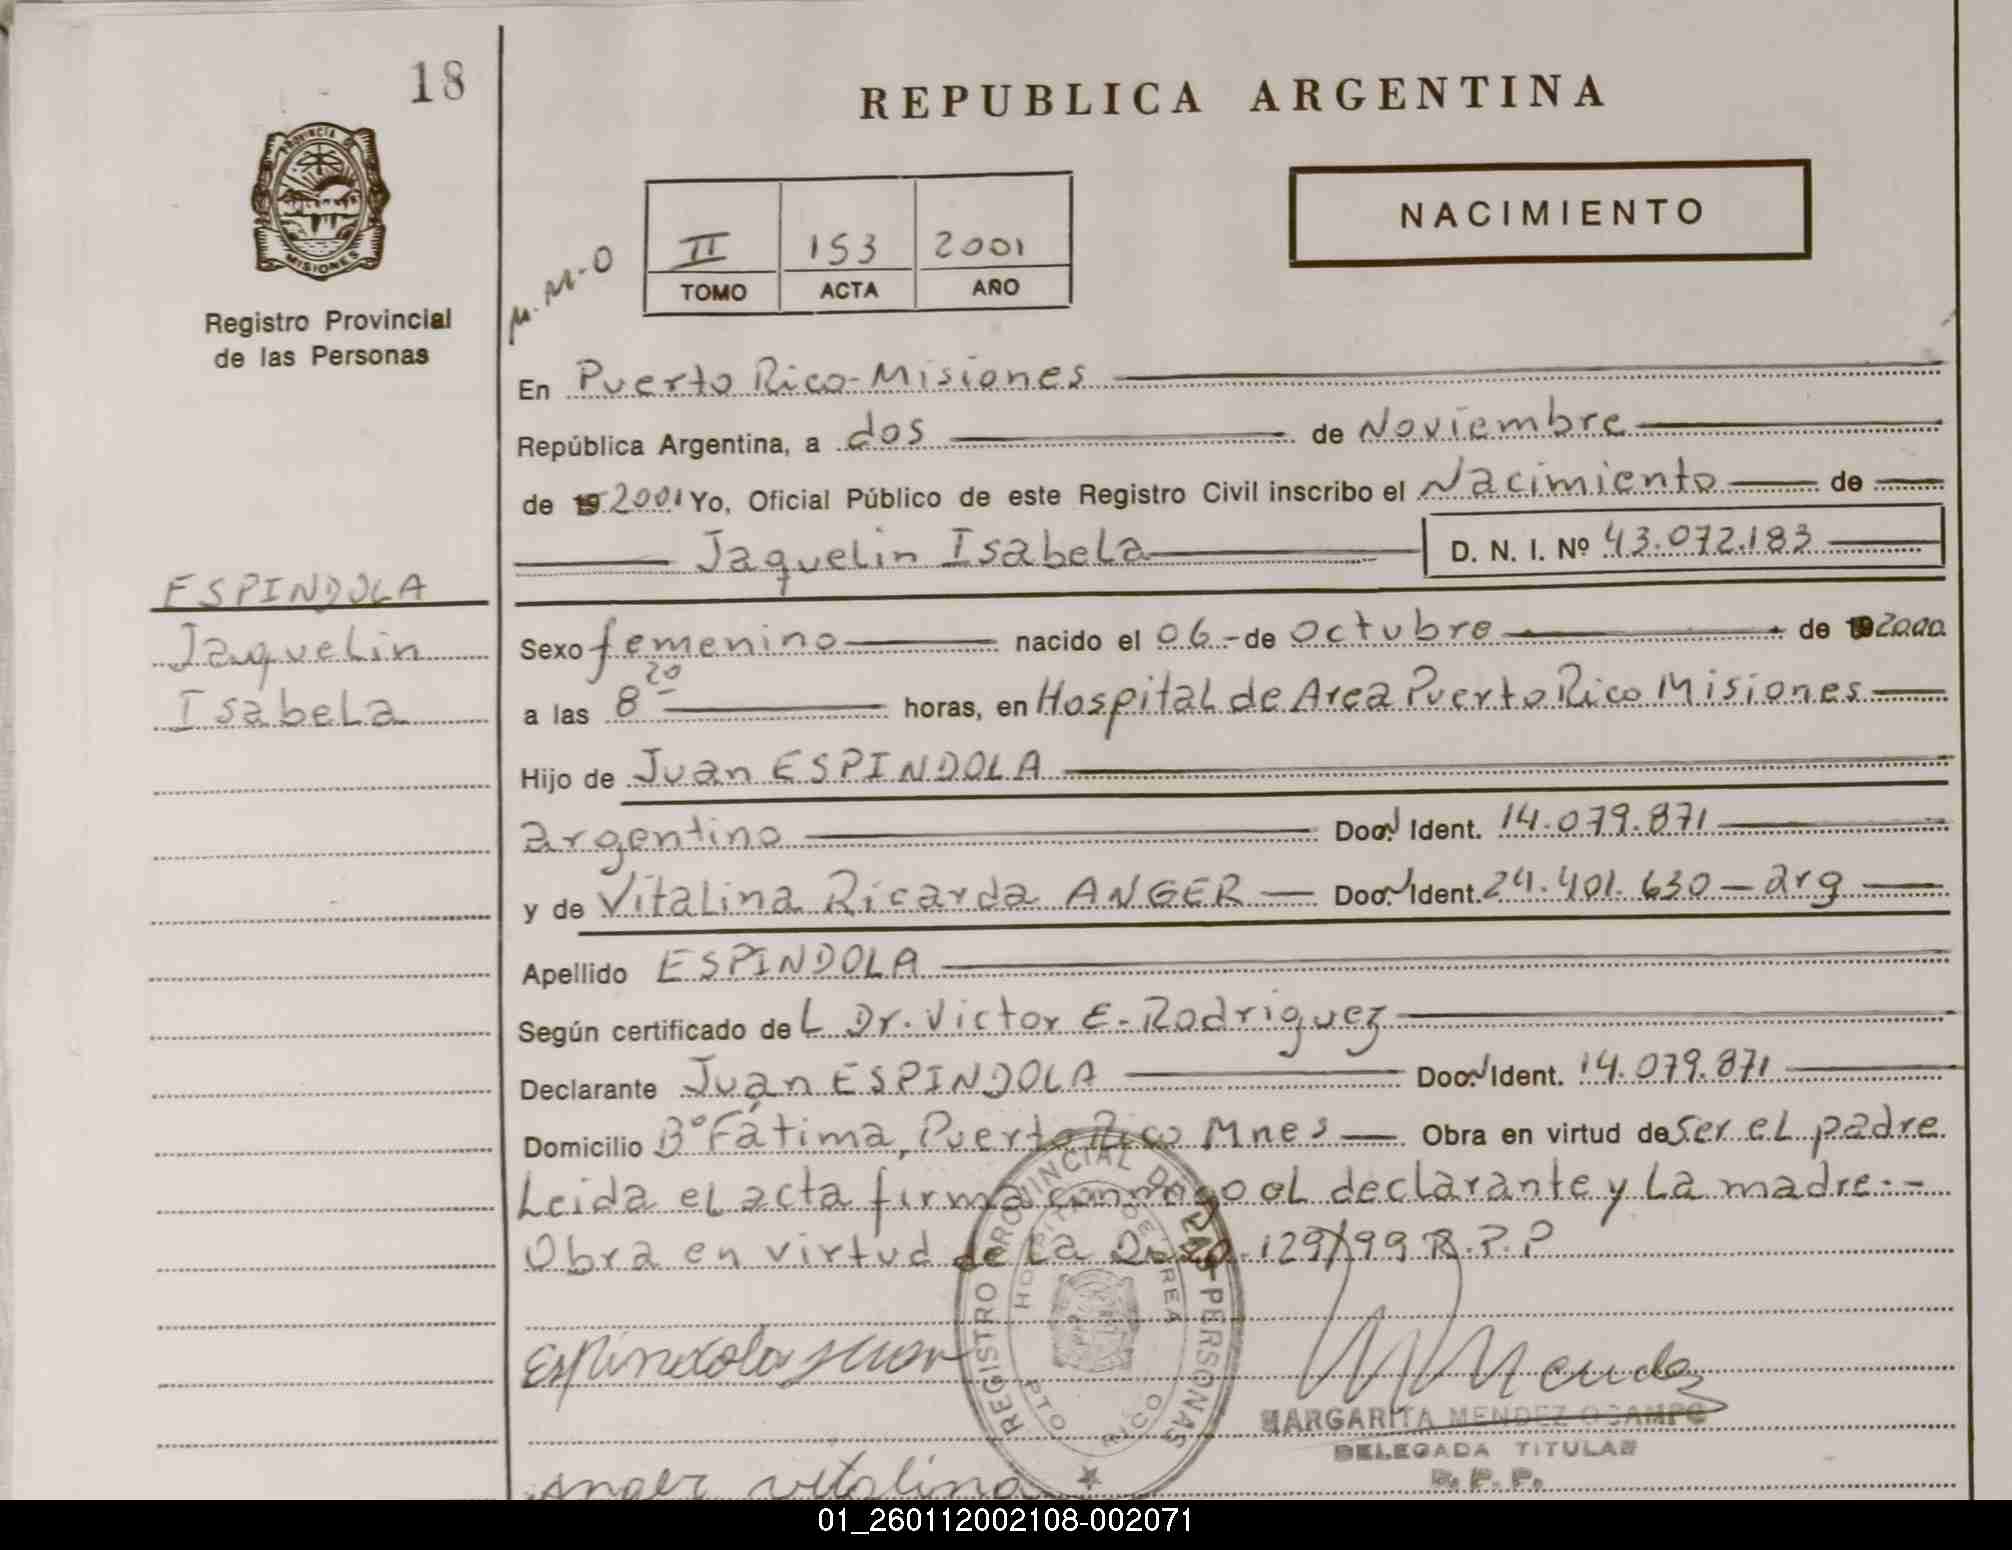 18
REPUBLICA ARGENTINA
PROVINCIA DE
MISIONES
NACIMIENTO
M.M.O
II 153 2001
TOMO ACTA AÑO
Registro Provincial
de las Personas
En Puerto Rico-Misiones
República Argentina, a dos de Noviembre
de 19 2001 Yo, Oficial Público de este Registro Civil inscribo el Nacimiento de
Jaquelin Isabela D. N. I. Nº 43.072.183
ESPINDOLA
Jaquelin
Isabela
Sexo femenino nacido el 06-de Octubre de 19 2000
a las 8 20 horas, en Hospital de Area Puerto Rico Misiones
Hijo de Juan ESPINDOLA
argentino Doc. Ident. 14.079.871
y de Vitalina Ricarda ANGER Doc. Ident. 24.401.630-arg
Apellido ESPINDOLA
Según certificado del Dr. Victor E. Rodriguez
Declarante Juan ESPINDOLA Doc. Ident. 14.079.871
Domicilio Bº Fátima, Puerto Rico Mnes Obra en virtud de ser el padre
Leida el acta firma conmigo el declarante y la madre.-
Obra en virtud de la 129/99 R.P.P
REGISTRO PROVINCIAL DE LAS PERSONAS
HOSPITAL DE AREA
PTO RICO
Espindola Juan
MARGARITA MENDEZ OCAMPO
DELEGADA TITULAR
R. P. P.
Anger vitalina
01_260112002108-002071